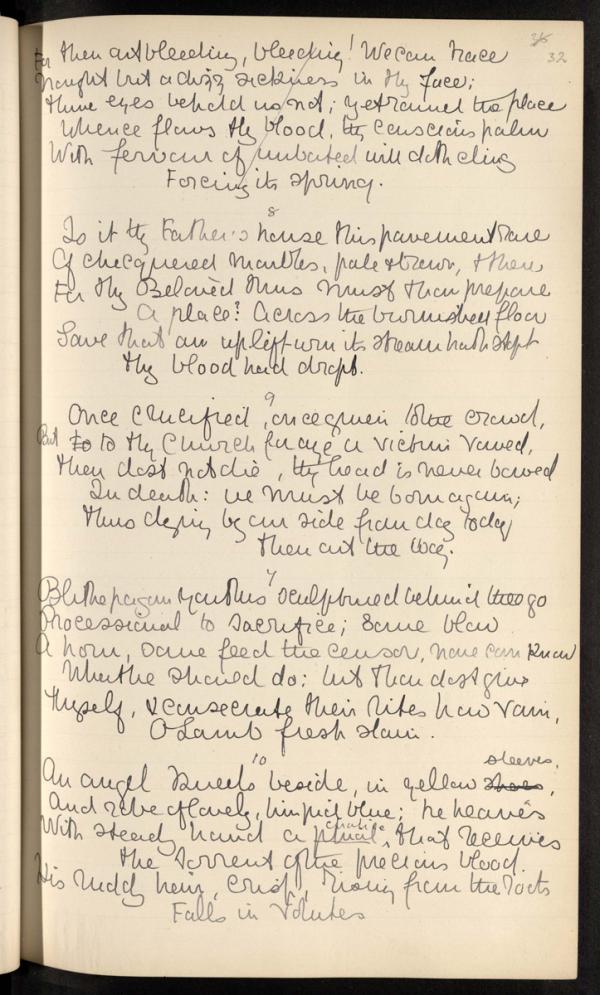 36
32
For thou art bleeding, bleeding! We can trace
Nought but a dizzy sickness in thy face;
Thine eyes behold us not; yet round the place
Whence flows thy blood, thy conscious palm
With fervour of unbated will doth cling
Forcing its spring.
8
Is it thy Father's house this pavement rare
Of chequered marbles, pale & brown, & there
For thy Beloved thus must thou prepare
A place? Across the burnished floor
Save that an uplift-urn its stream hath stept
Thy blood had dropt.
9
Once crucified, once given to the crowd,
But to to thy Church for aye a victim vowed,
Thou dost not die, thy head is never bowed
In death: we must be born again;
Thus dying by our side from day to day
Thou art the Way.
7
Blithe pagan youths sculptured behind thee go
Processional to sacrifice; some blow
A horn, some feed the censor, none can know
What he should do: but Thou dost give
Thyself, & consecrate their rites how vain,
O Lamb fresh slain.
10
sleeves,
An angel kneels beside, in yellow shoes,
And robe of lovely, limpid blue; he heaves
chalice
With steady hand a phial, that receives
The torrent of the precious blood.
His ruddy hair, crisp, rising from the roots
Falls in volutes